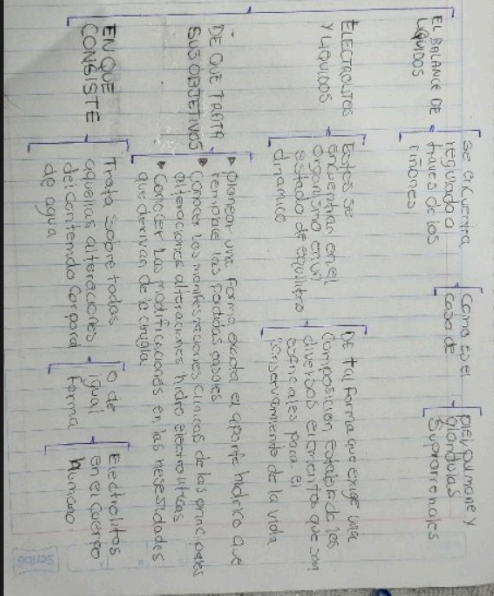 EL BALANCE DE
LIQUIDOS
se encuentra
regulado a
traves de los
riñones
Como es el
caso de
piel pulmone y
glandulas
suprarrenales
ELECTROLITOS
Y LIQUIDOS
Estos se
encuentran en el
organismo en un
estado de equilibro
dinamico
De tal forma que exige una
composicion estable de los
diversos elementos que son
esenciales para el
conservamiento de la vida
DE QUE TRATA
SUS OBJETIVOS
planear una forma exacta el aporte hidrico que
remplace las perdidas
Conocer las manifestaciones clinicas de las principales
alteraciones alteraciones hidro electroliticas
Conocer las modificaciones en las nesesidades
que derivan de la cirugia
EN QUE
CONSISTE
Trata sobre todas
aquellas alteraciones
del contenido corporal
de agua
o de
igual
forma
Electrolitos
en el cuerpo
humano
Scribe